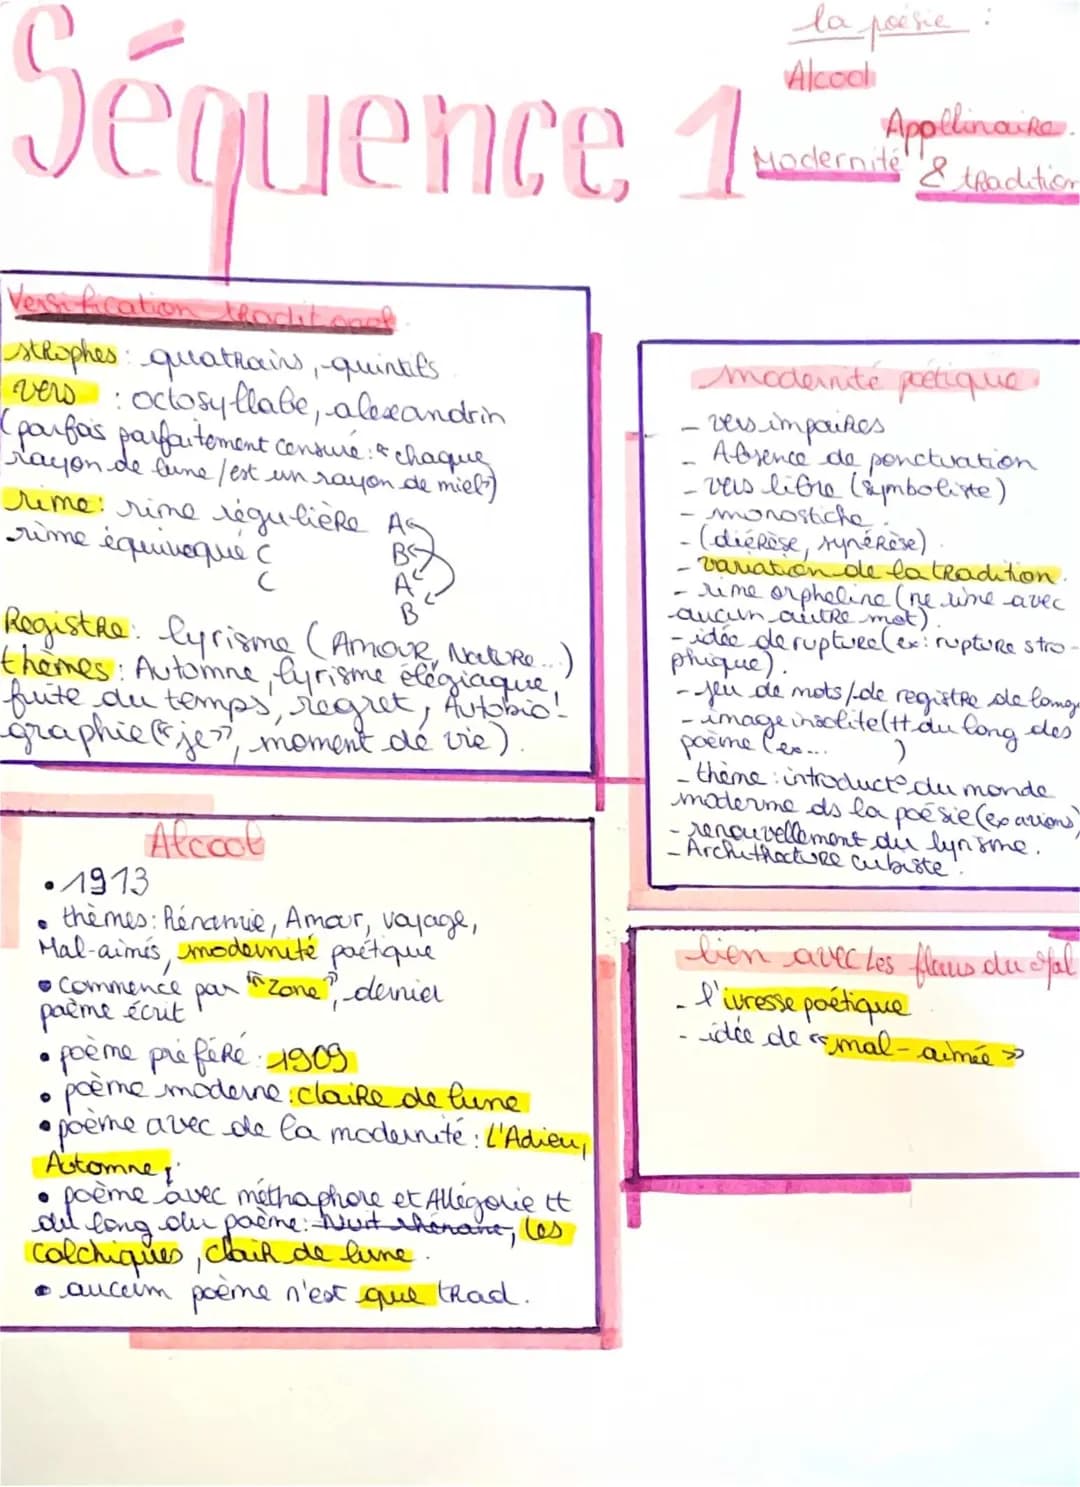 Séquence 1
la poésie :
Alcool
Appollinaire.
Modernité
& tradition
Versification traditionnel
strophes : quatrains, quintils
vers : octosyllabe, alexandrin
(parfois parfaitement censuré : "chaque
rayon de lune / est un rayon de miel")
rime : rime régulière A
rime équivoque C B
C A
B
Registre : lyrisme (Amour, Nature...)
thèmes : Automne, lyrisme élégiaque,
fuite du temps, regret, Autobio-
graphie («je», moment de vie).
modernité poétique.
- vers impaires
- Absence de ponctuation
- vers libre (symboliste)
- monostiche.
- (diérèse, synérèse).
- variation de la tradition.
- rime orpheline (ne rime avec
aucun autre mot).
- idée de rupture (ex : rupture stro-
phique).
- jeu de mots / de registre de lang
- image insolite (tt du long des
poème (ex... )
- thème : introduct° du monde
moderme ds la poésie (ex avions)
- renouvellement du lyrisme.
- Archithecture cubiste.
Alcool
• 1913
• thèmes : Rénanie, Amour, voyage,
Mal-aimés, modernité poétique
• Commence par "Zone", dernier
poème écrit
• poème préféré : 1909
• poème moderne : claire de lune
• poème avec de la modernité : L'Adieu,
Automne,
• poème avec méthaphore et Allégorie tt
du long du poème : Nuit rhénane, les
colchiques, clair de lune.
• aucum poème n'est que trad.
lien avec Les fleurs du Mal
- l'ivresse poétique
- idée de «mal-aimée»